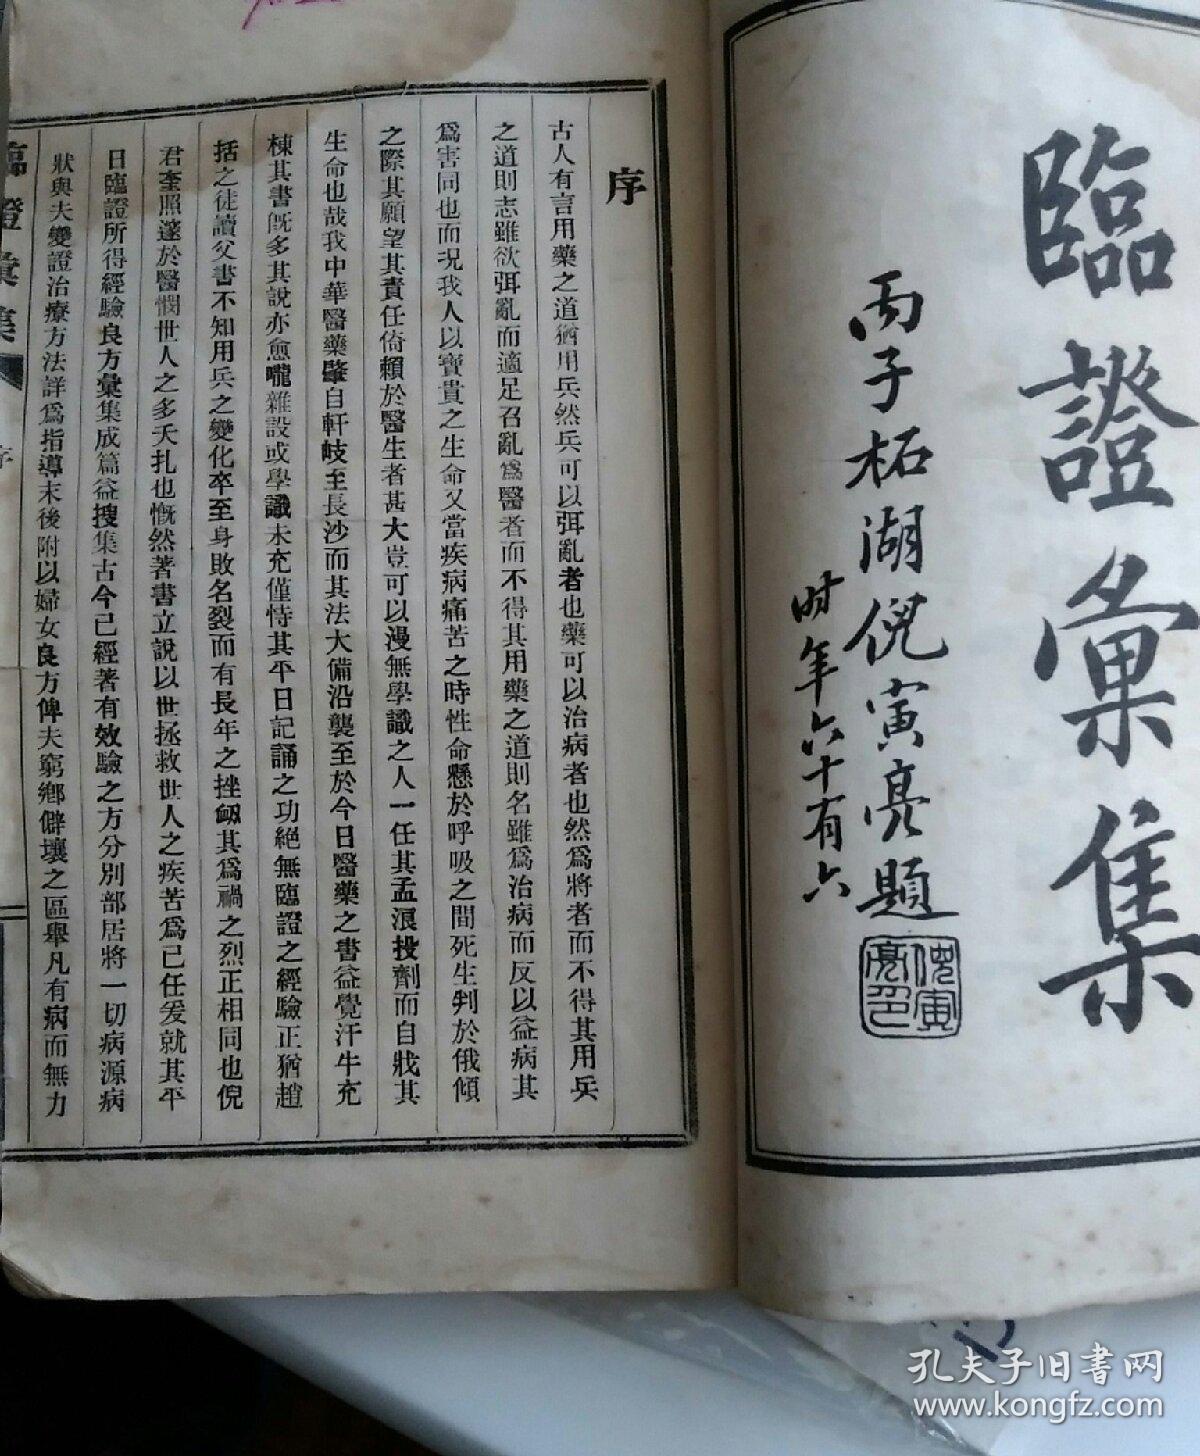 臨證彙集
丙子柘湖倪寅亮題
时年六十有六
倪寅亮印
序
古人有言用藥之道猶用兵然兵可以弭亂者也藥可以治病者也然爲將者而不得其用兵
之道則志雖欲弭亂而適足召亂爲醫者而不得其用藥之道則名雖爲治病而反以益病其
爲害同也而况我人以寶貴之生命又當疾病痛苦之時性命懸於呼吸之間死生判於俄傾
之際其願望其責任倚賴於醫生者甚大豈可以漫無學識之人一任其孟浪投劑而自戕其
生命也哉我中華醫藥肇自軒岐至長沙而其法大備沿襲至於今日醫藥之書益覺汗牛充
棟其書旣多其說亦愈嚨雜設或學識未充僅恃其平日記誦之功絕無臨證之經驗正猶趙
括之徒讀父書不知用兵之變化卒至身敗名裂而有長年之挫衂其爲禍之烈正相同也倪
君奎照邃於醫憫世人之多夭扎也慨然著書立說以世拯救世人之疾苦爲已任爰就其平
日臨證所得經驗良方彙集成篇益搜集古今已經著有效驗之方分別部居將一切病源病
狀與夫變證治療方法詳爲指導末後附以婦女良方俾夫窮鄉僻壤之區舉凡有病而無力
臨證彙集
序
孔夫子旧书网
www.kongfz.com